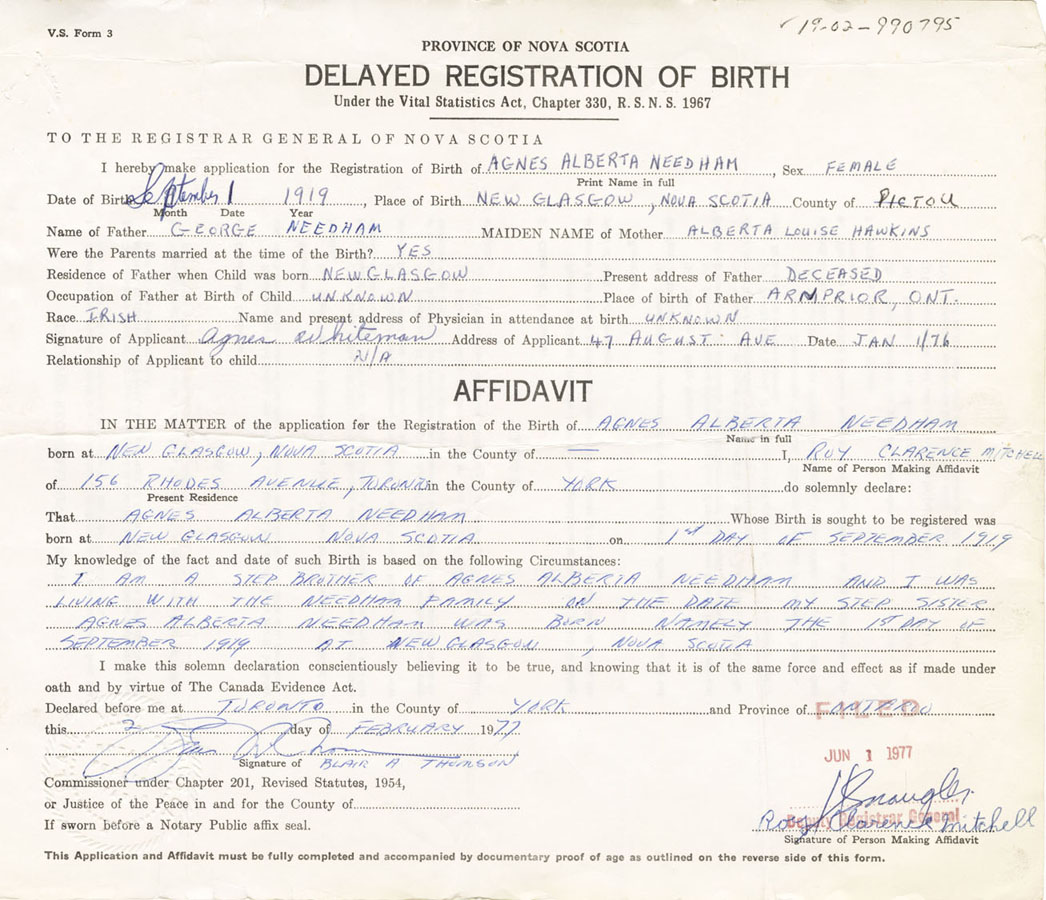 V.S. Form 3
19-02-990795
PROVINCE OF NOVA SCOTIA
DELAYED REGISTRATION OF BIRTH
Under the Vital Statistics Act, Chapter 330, R. S. N. S. 1967
TO THE REGISTRAR GENERAL OF NOVA SCOTIA
I hereby make application for the Registration of Birth of AGNES ALBERTA NEEDHAM, Sex FEMALE
Print Name in full
Date of Birth September 1 1919, Place of Birth NEW GLASGOW, NOVA SCOTIA County of PICTOU
Month Date Year
Name of Father GEORGE NEEDHAM MAIDEN NAME of Mother ALBERTA LOUISE HAWKINS
Were the Parents married at the time of the Birth? YES
Residence of Father when Child was born NEW GLASGOW Present address of Father DECEASED
Occupation of Father at Birth of Child UNKNOWN Place of birth of Father ARNPRIOR, ONT.
Race IRISH Name and present address of Physician in attendance at birth UNKNOWN
Signature of Applicant Agnes Whiteman Address of Applicant 47 AUGUST AVE Date JAN 1/76
Relationship of Applicant to child N/A
AFFIDAVIT
IN THE MATTER of the application for the Registration of the Birth of AGNES ALBERTA NEEDHAM
Name in full
born at NEW GLASGOW, NOVA SCOTIA in the County of — I, ROY CLARENCE MITCHELL
Name of Person Making Affidavit
of 156 RHODES AVENUE, TORONTO in the County of YORK do solemnly declare:
Present Residence
That AGNES ALBERTA NEEDHAM Whose Birth is sought to be registered was
born at NEW GLASGOW NOVA SCOTIA on 1st DAY OF SEPTEMBER 1919
My knowledge of the fact and date of such Birth is based on the following Circumstances:
I AM A STEP BROTHER OF AGNES ALBERTA NEEDHAM AND I WAS
LIVING WITH THE NEEDHAM FAMILY ON THE DATE MY STEP SISTER
AGNES ALBERTA NEEDHAM WAS BORN NAMELY THE 1ST DAY OF
SEPTEMBER 1919 AT NEW GLASGOW, NOVA SCOTIA
I make this solemn declaration conscientiously believing it to be true, and knowing that it is of the same force and effect as if made under
oath and by virtue of The Canada Evidence Act.
Declared before me at TORONTO in the County of YORK and Province of ONTARIO
FILED
this 2 day of FEBRUARY 1977
JUN 1 1977
Signature of BLAIR A THOMSON
Commissioner under Chapter 201, Revised Statutes, 1954,
or Justice of the Peace in and for the County of
Deputy Registrar General
If sworn before a Notary Public affix seal.
Roy Clarence Mitchell
Signature of Person Making Affidavit
This Application and Affidavit must be fully completed and accompanied by documentary proof of age as outlined on the reverse side of this form.